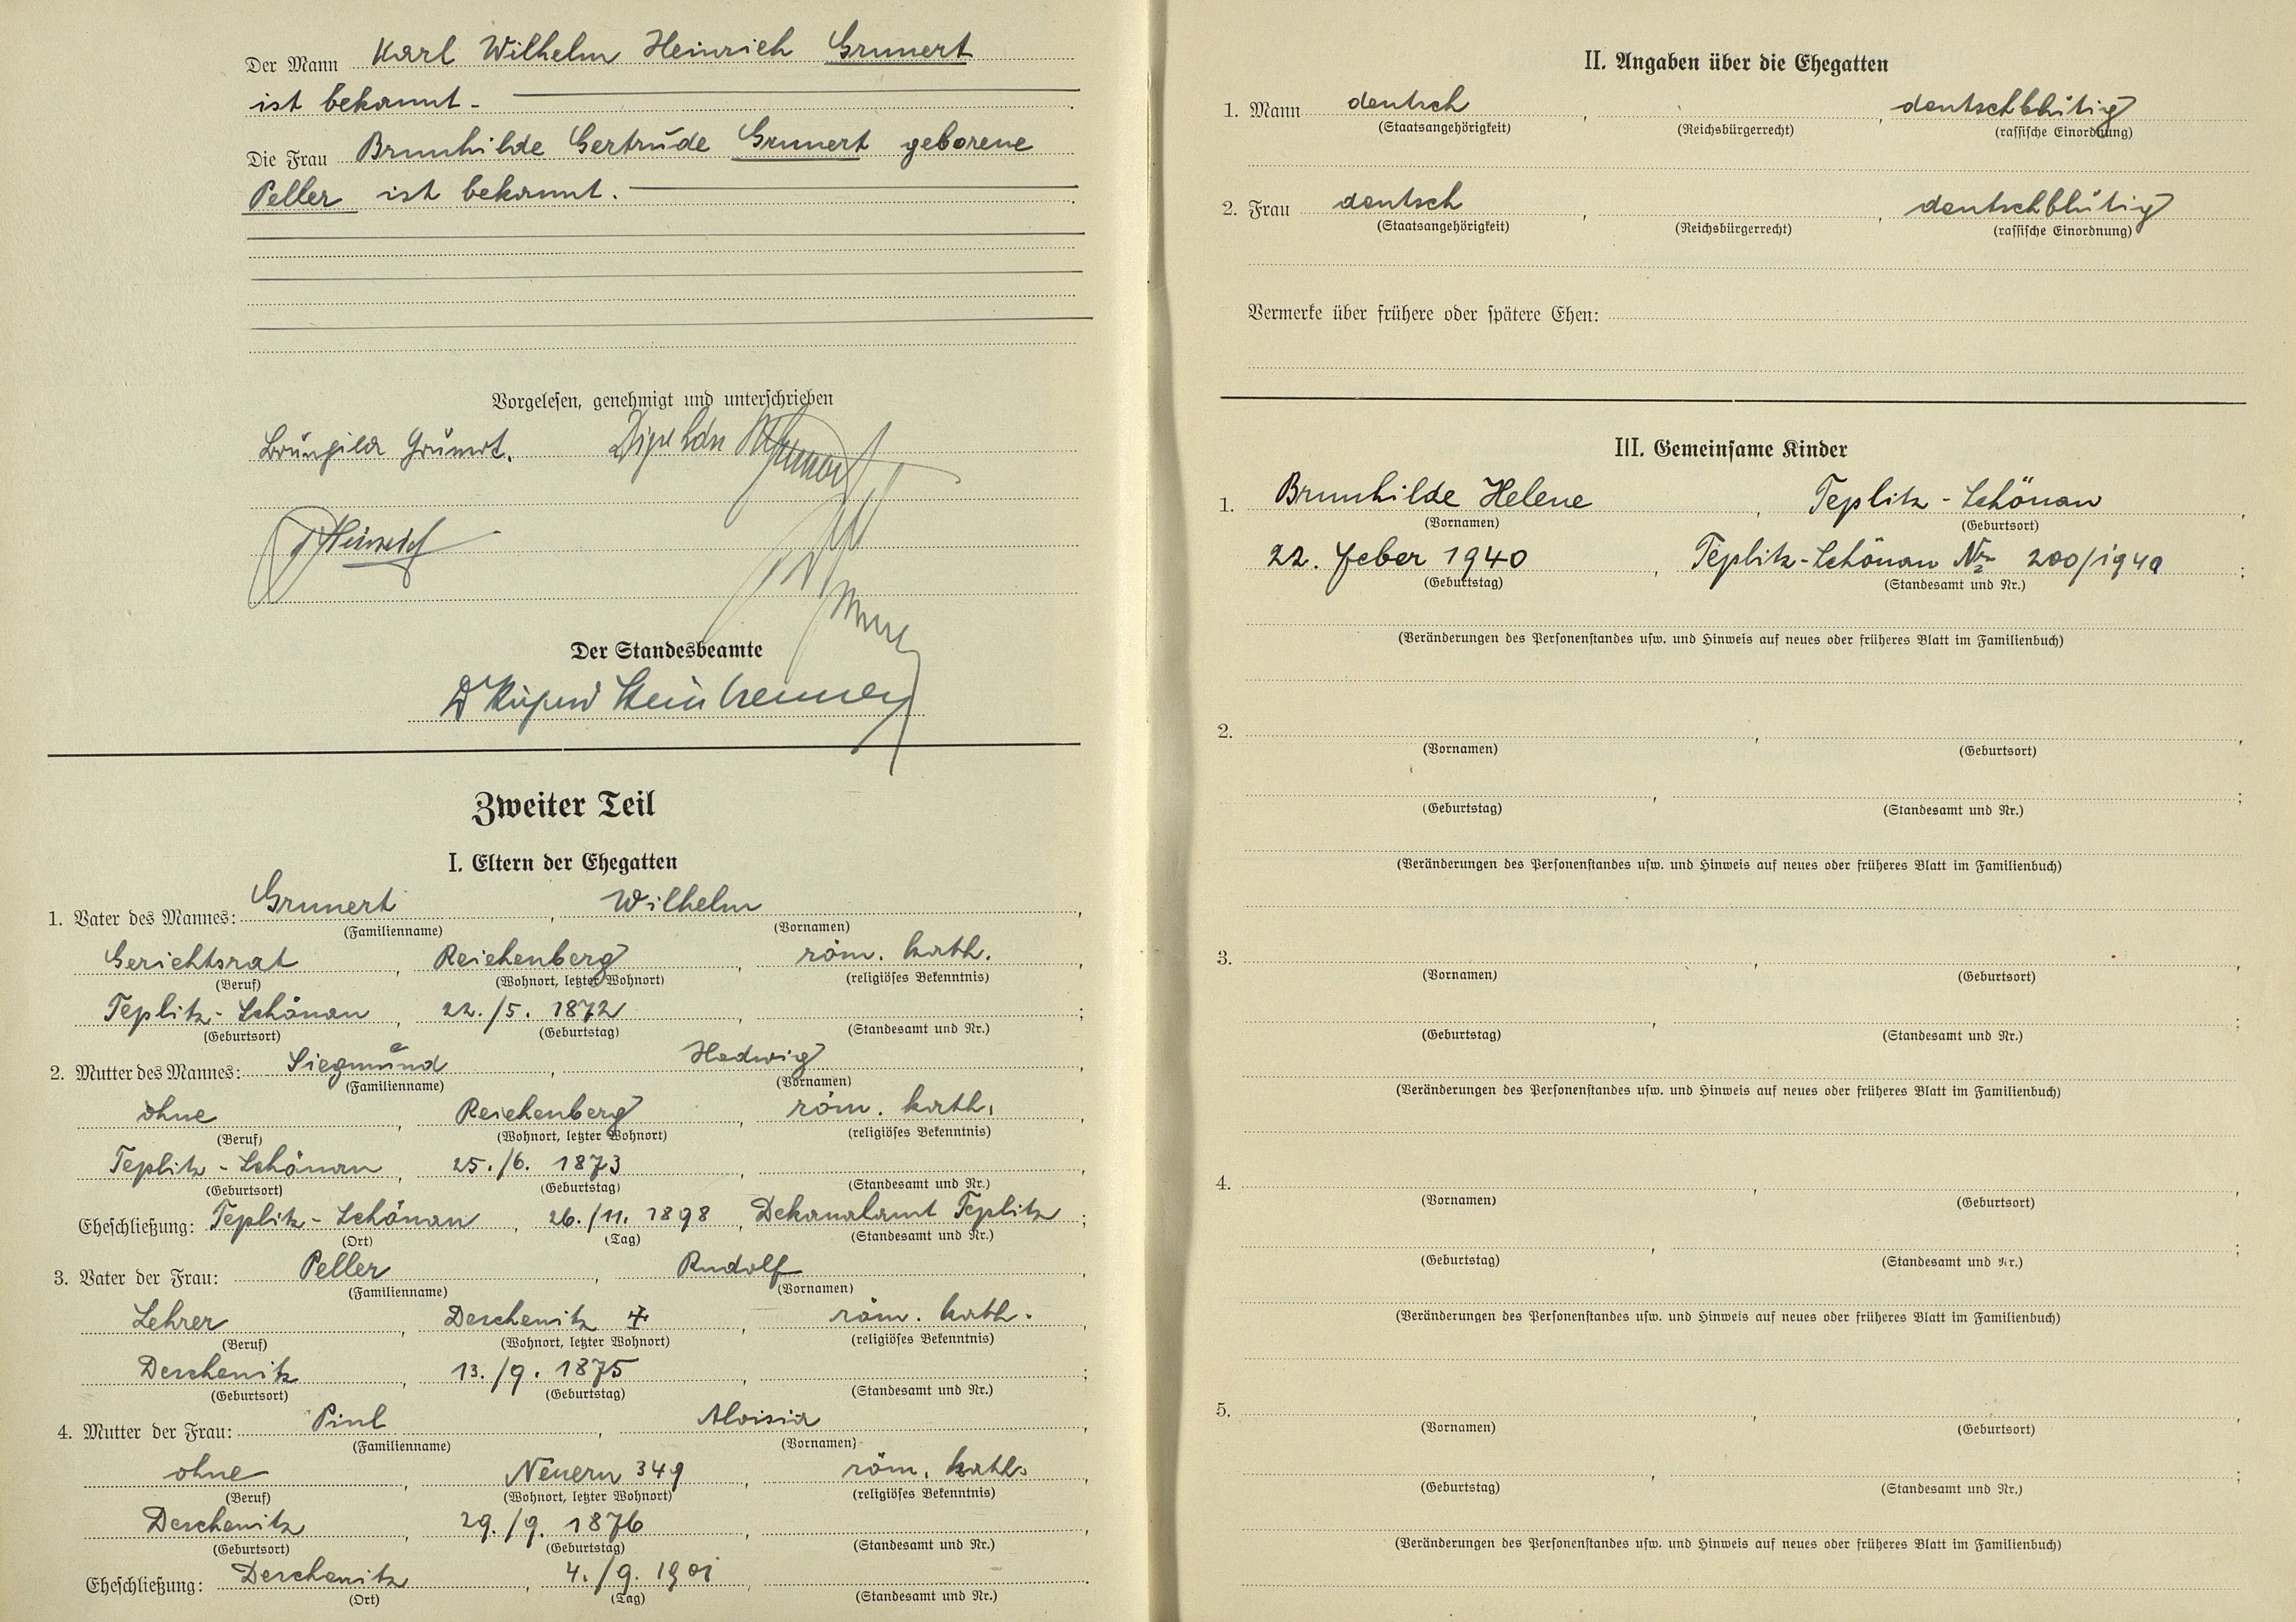 Der Mann Karl Wilhelm Heinrich Grunert
ist bekannt.
Die Frau Brunhilde Gertrude Grunert geborene
Peller ist bekannt.
Vorgelesen, genehmigt und unterschrieben
Brünhild Grünert.
Der Standesbeamte
Zweiter Teil
I. Eltern der Ehegatten
1. Vater des Mannes: Grunert, Wilhelm,
(Familienname) (Vornamen)
Gerichtsrat, Reichenberg, röm. kath.,
(Beruf) (Wohnort, letzter Wohnort) (religiöses Bekenntnis)
Teplitz-Schönau, 22./5. 1872,;
(Geburtsort) (Geburtstag) (Standesamt und Nr.)
2. Mutter des Mannes: Siegmund, Hedwig,
(Familienname) (Vornamen)
ohne, Reichenberg, röm. kath.,
(Beruf) (Wohnort, letzter Wohnort) (religiöses Bekenntnis)
Teplitz-Schönau, 25./6. 1873,,
(Geburtsort) (Geburtstag) (Standesamt und Nr.)
Eheschließung: Teplitz-Schönau, 26./11. 1898, Dekanalamt Teplitz;
(Ort) (Tag) (Standesamt und Nr.)
3. Vater der Frau: Peller, Rudolf,
(Familienname) (Vornamen)
Lehrer, Deschenitz ‡, röm. kath.,
(Beruf) (Wohnort, letzter Wohnort) (religiöses Bekenntnis)
Deschenitz, 13./9. 1875,;
(Geburtsort) (Geburtstag) (Standesamt und Nr.)
4. Mutter der Frau: Pinl, Aloisia,
(Familienname) (Vornamen)
ohne, Neuern 349, röm. kath.,
(Beruf) (Wohnort, letzter Wohnort) (religiöses Bekenntnis)
Deschenitz, 29./9. 1876,,
(Geburtsort) (Geburtstag) (Standesamt und Nr.)
Eheschließung: Deschenitz, 4./9. 1901,.
(Ort) (Tag) (Standesamt und Nr.)
II. Angaben über die Ehegatten
1. Mann deutsch,, deutschblütig
(Staatsangehörigkeit) (Reichsbürgerrecht) (rassische Einordnung)
2. Frau deutsch,, deutschblütig
(Staatsangehörigkeit) (Reichsbürgerrecht) (rassische Einordnung)
Vermerke über frühere oder spätere Ehen:
III. Gemeinsame Kinder
1. Brunhilde Helene, Teplitz-Schönau,
(Vornamen) (Geburtsort)
22. Feber 1940, Teplitz-Schönau Nr 200/1940;
(Geburtstag) (Standesamt und Nr.)
(Veränderungen des Personenstandes usw. und Hinweis auf neues oder früheres Blatt im Familienbuch)
2.
(Vornamen) (Geburtsort)
(Geburtstag) (Standesamt und Nr.)
(Veränderungen des Personenstandes usw. und Hinweis auf neues oder früheres Blatt im Familienbuch)
3.
(Vornamen) (Geburtsort)
(Geburtstag) (Standesamt und Nr.)
(Veränderungen des Personenstandes usw. und Hinweis auf neues oder früheres Blatt im Familienbuch)
4.
(Vornamen) (Geburtsort)
(Geburtstag) (Standesamt und Nr.)
(Veränderungen des Personenstandes usw. und Hinweis auf neues oder früheres Blatt im Familienbuch)
5.
(Vornamen) (Geburtsort)
(Geburtstag) (Standesamt und Nr.)
(Veränderungen des Personenstandes usw. und Hinweis auf neues oder früheres Blatt im Familienbuch)